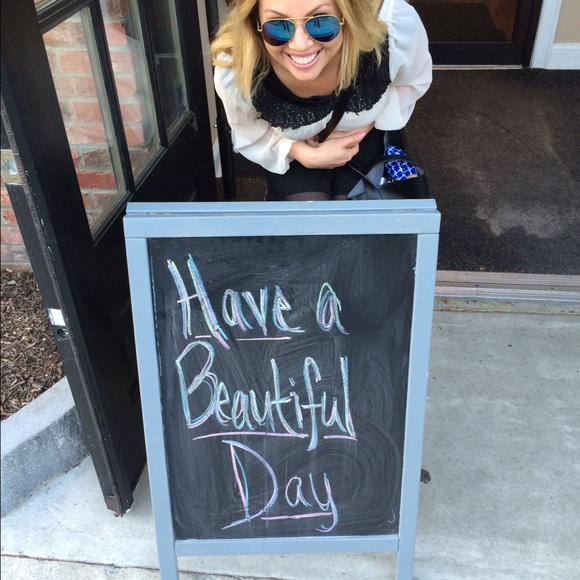 Have a
Beautiful
Day